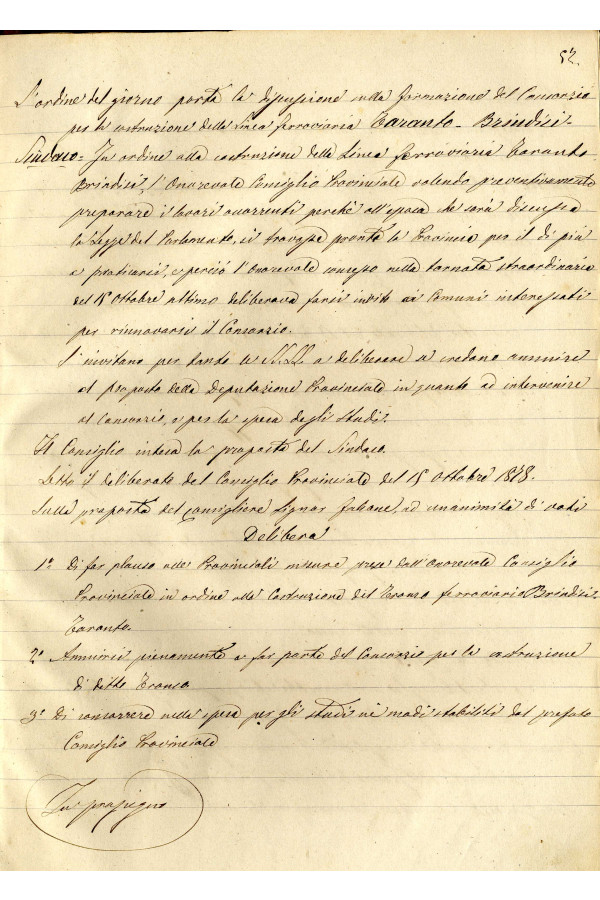 52.
L'ordine del giorno porta la discussione sulla formazione del Consorzio
per la costruzione della Linea ferroviaria Taranto - Brindisi.
Sindaco = In ordine alla costruzione della Linea ferroviaria Taranto-
Brindisi, l'Onorevole Consiglio Provinciale volendo preventivamente
preparare i lavori occorrenti perché all'epoca che sarà discussa
la Legge dal Parlamento, si trovasse pronta la Provincia per il di più
a praticarsi, e perciò l'Onorevole consesso nella tornata straordinaria
del 15 Ottobre ultimo deliberava farsi inviti ai Comuni interessati
per rinnovarsi il Consorzio.
S'invitano per tanto le S.S. L.L. a deliberare se credono annuire
al proposto della Deputazione Provinciale in quanto ad intervenire
al Consorzio, e per la spesa degli studi.
Il Consiglio intesa la proposta del Sindaco.
Letto il deliberato del Consiglio Provinciale del 15 Ottobre 1878.
Sulla proposta del Consigliere Signor ad unanimità di voti
Delibera
1º Di far plauso alle Provinciali misure prese dall'Onorevole Consiglio
Provinciale in ordine alla Costruzione del Tronco ferroviario Brindisi-
Taranto.
2º Annuirsi pienamente a far parte del Consorzio per la costruzione
di detto Tronco
3º Di concorrere nella spesa per gli studi nei modi stabiliti dal prefato
Consiglio Provinciale